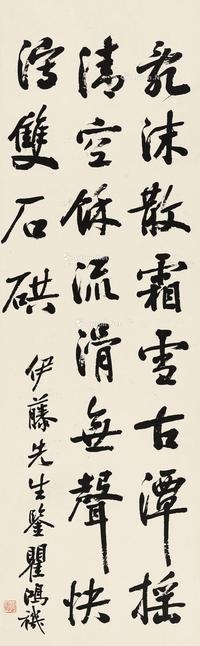 亂沫散霜雪古潭搖
清空餘流滑無聲快
瀉雙石硔
伊藤先生鑒 瞿鴻禨